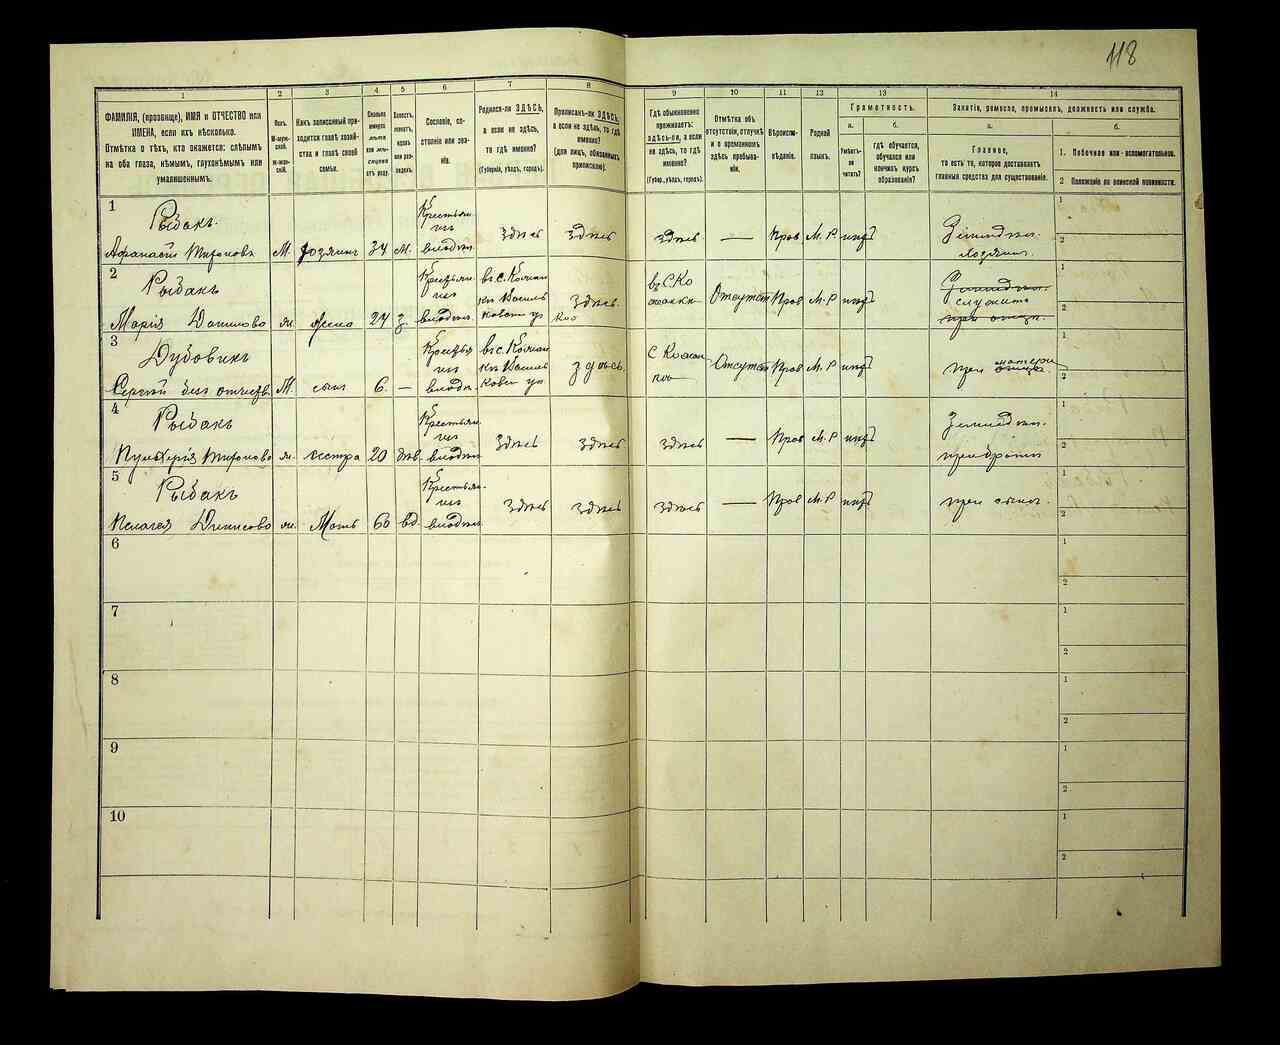 118
1
2
3
4
5
6
7
8
9
10
11
12
13
14
ФАМИЛІЯ, (прозвище), ИМЯ и ОТЧЕСТВО или
ИМЕНА, если ихъ нѣсколько.
Отмѣтка о тѣхъ, кто окажется: слѣпымъ
на оба глаза, нѣмымъ, глухонѣмымъ или
умалишеннымъ.
Полъ.
М-муж-
ской.
Ж-жен-
скій.
Какъ записанный при-
ходится главѣ хозяй-
ства и главѣ своей
семьи.
Сколько
минуло
лѣтъ
или мѣ-
сяцевъ
отъ роду.
Холостъ,
женатъ,
вдовъ
или раз-
веденъ.
Сословіе, со-
стояніе или зва-
ніе.
Родился-ли ЗДѢСЬ,
а если не здѣсь,
то гдѣ именно?
(Губернія, уѣздъ, городъ).
Приписанъ-ли ЗДѢСЬ,
а если не здѣсь, то гдѣ
именно?
(для лицъ, обязанныхъ
припискою).
Гдѣ обыкновенно
проживаетъ:
здѣсь-ли, а если
не здѣсь, то гдѣ
именно?
(Губер., уѣздъ, городъ).
Отмѣтка объ
отсутствіи, отлучкѣ
и о временномъ
здѣсь пребыва-
ніи.
Вѣроиспо-
вѣданіе.
Родной
языкъ.
Грамотность.
а.
б.
Умѣетъ-
ли
читать?
Гдѣ обучается,
обучался или
кончилъ курсъ
образованія?
Занятіе, ремесло, промыселъ, должность или служба.
а.
б.
Главное,
то есть то, которое доставляетъ
главныя средства для существованія.
1. Побочное или вспомогательное.
2 Положеніе по воинской повинности.
1
Рыбакъ
Афанасій Мироновъ
М.
хозяинъ
34
ж.
Крестьян.
изъ
владѣл.
здѣсь
здѣсь
здѣсь
—
Прав
М. Р.
нѣтъ
хозяинъ
1
2
2
Рыбакъ
Марія Данилова
ж.
жена
24
з.
владѣл.
здѣсь
Прав
М. Р
нѣтъ
служитъ
1
2
3
Дубовикъ
Сергѣй без отчеств
М.
сынъ
6.
—
здѣсь.
Прав
М. Р
нѣтъ
при матери
1
2
4
Рыбакъ
Пулхерія Миронова
ж.
сестра
20
дѣв.
Крестьян.
изъ
владѣл.
здѣсь
здѣсь
здѣсь
—
Прав
М. Р
нѣтъ
при братѣ
1
2
5
Рыбакъ
Пелагея Денисова
ж.
Мать
60
вд.
Крестьян.
изъ
владѣл.
здѣсь
здѣсь
здѣсь
—
Прав
М. Р
нѣтъ
при сынѣ.
1
2
6
1
2
7
1
2
8
1
2
9
1
2
10
1
2